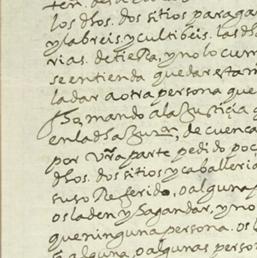 los dhos. dos sitios para ga
y labreis, y cultibeis. las dh
rias. de tieRa, y no lo cum
se entienda quedar esta m
ladar a otra persona que
mando a la Justiçia
en la dha de cuenca
por Vra parte pedido po
dhos. dos sitios y caballeri
suso Referido, o alguna p
os la den y hagan dar, y no
que ninguna persona. os
alguna, o algunas perso